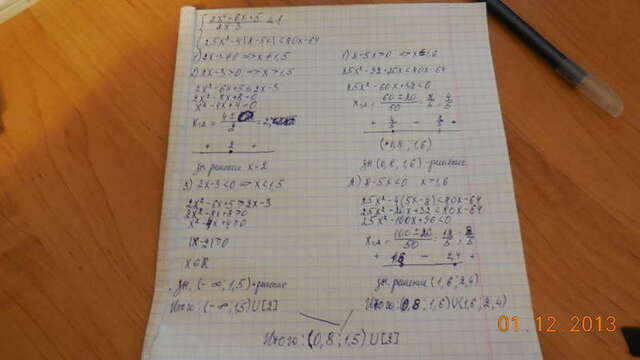 2x²-6x+5
2x-3 ≤1
25x²-4|8-5x|<80x-64
1) 2x-3≠0 => x≠1,5
2) 2x-3>0 => x>1,5
2x²-6x+5≤2x-3
2x²-8x+8≤0
x²-4x+4≤0
+ 2 +
x=2
3) 2x-3<0 => x<1,5
2x²-6x+5≥2x-3
2x²-8x+8≥0
x²-4x+4≥0
(x-2)²≥0
x∈R
(-∞; 1,5) - решение
Итого: (-∞; 1,5)∪[2]
1) 8-5x≥0 => x≤1,6
25x²-32+20x<80x-64
25x²-60x+32<0
x₁,₂= 60±20
50 = 8
5 ; 4
5
+ 4
5 - 8
5 +
(0,8; 1,6)
(0,8; 1,6) - решение
2) 8-5x<0 x>1,6
25x²-4(5x-8)<80x-64
25x²-20x+32<80x-64
25x²-100x+96<0
x₁,₂= 100±20
50 = 12
5 ; 8
5
+ 1,6 - 2,4 +
решение (1,6; 2,4)
Итого: (0,8; 1,6)∪(1,6; 2,4)
Итого: (0,8; 1,5)∪[2]
01.12.2013